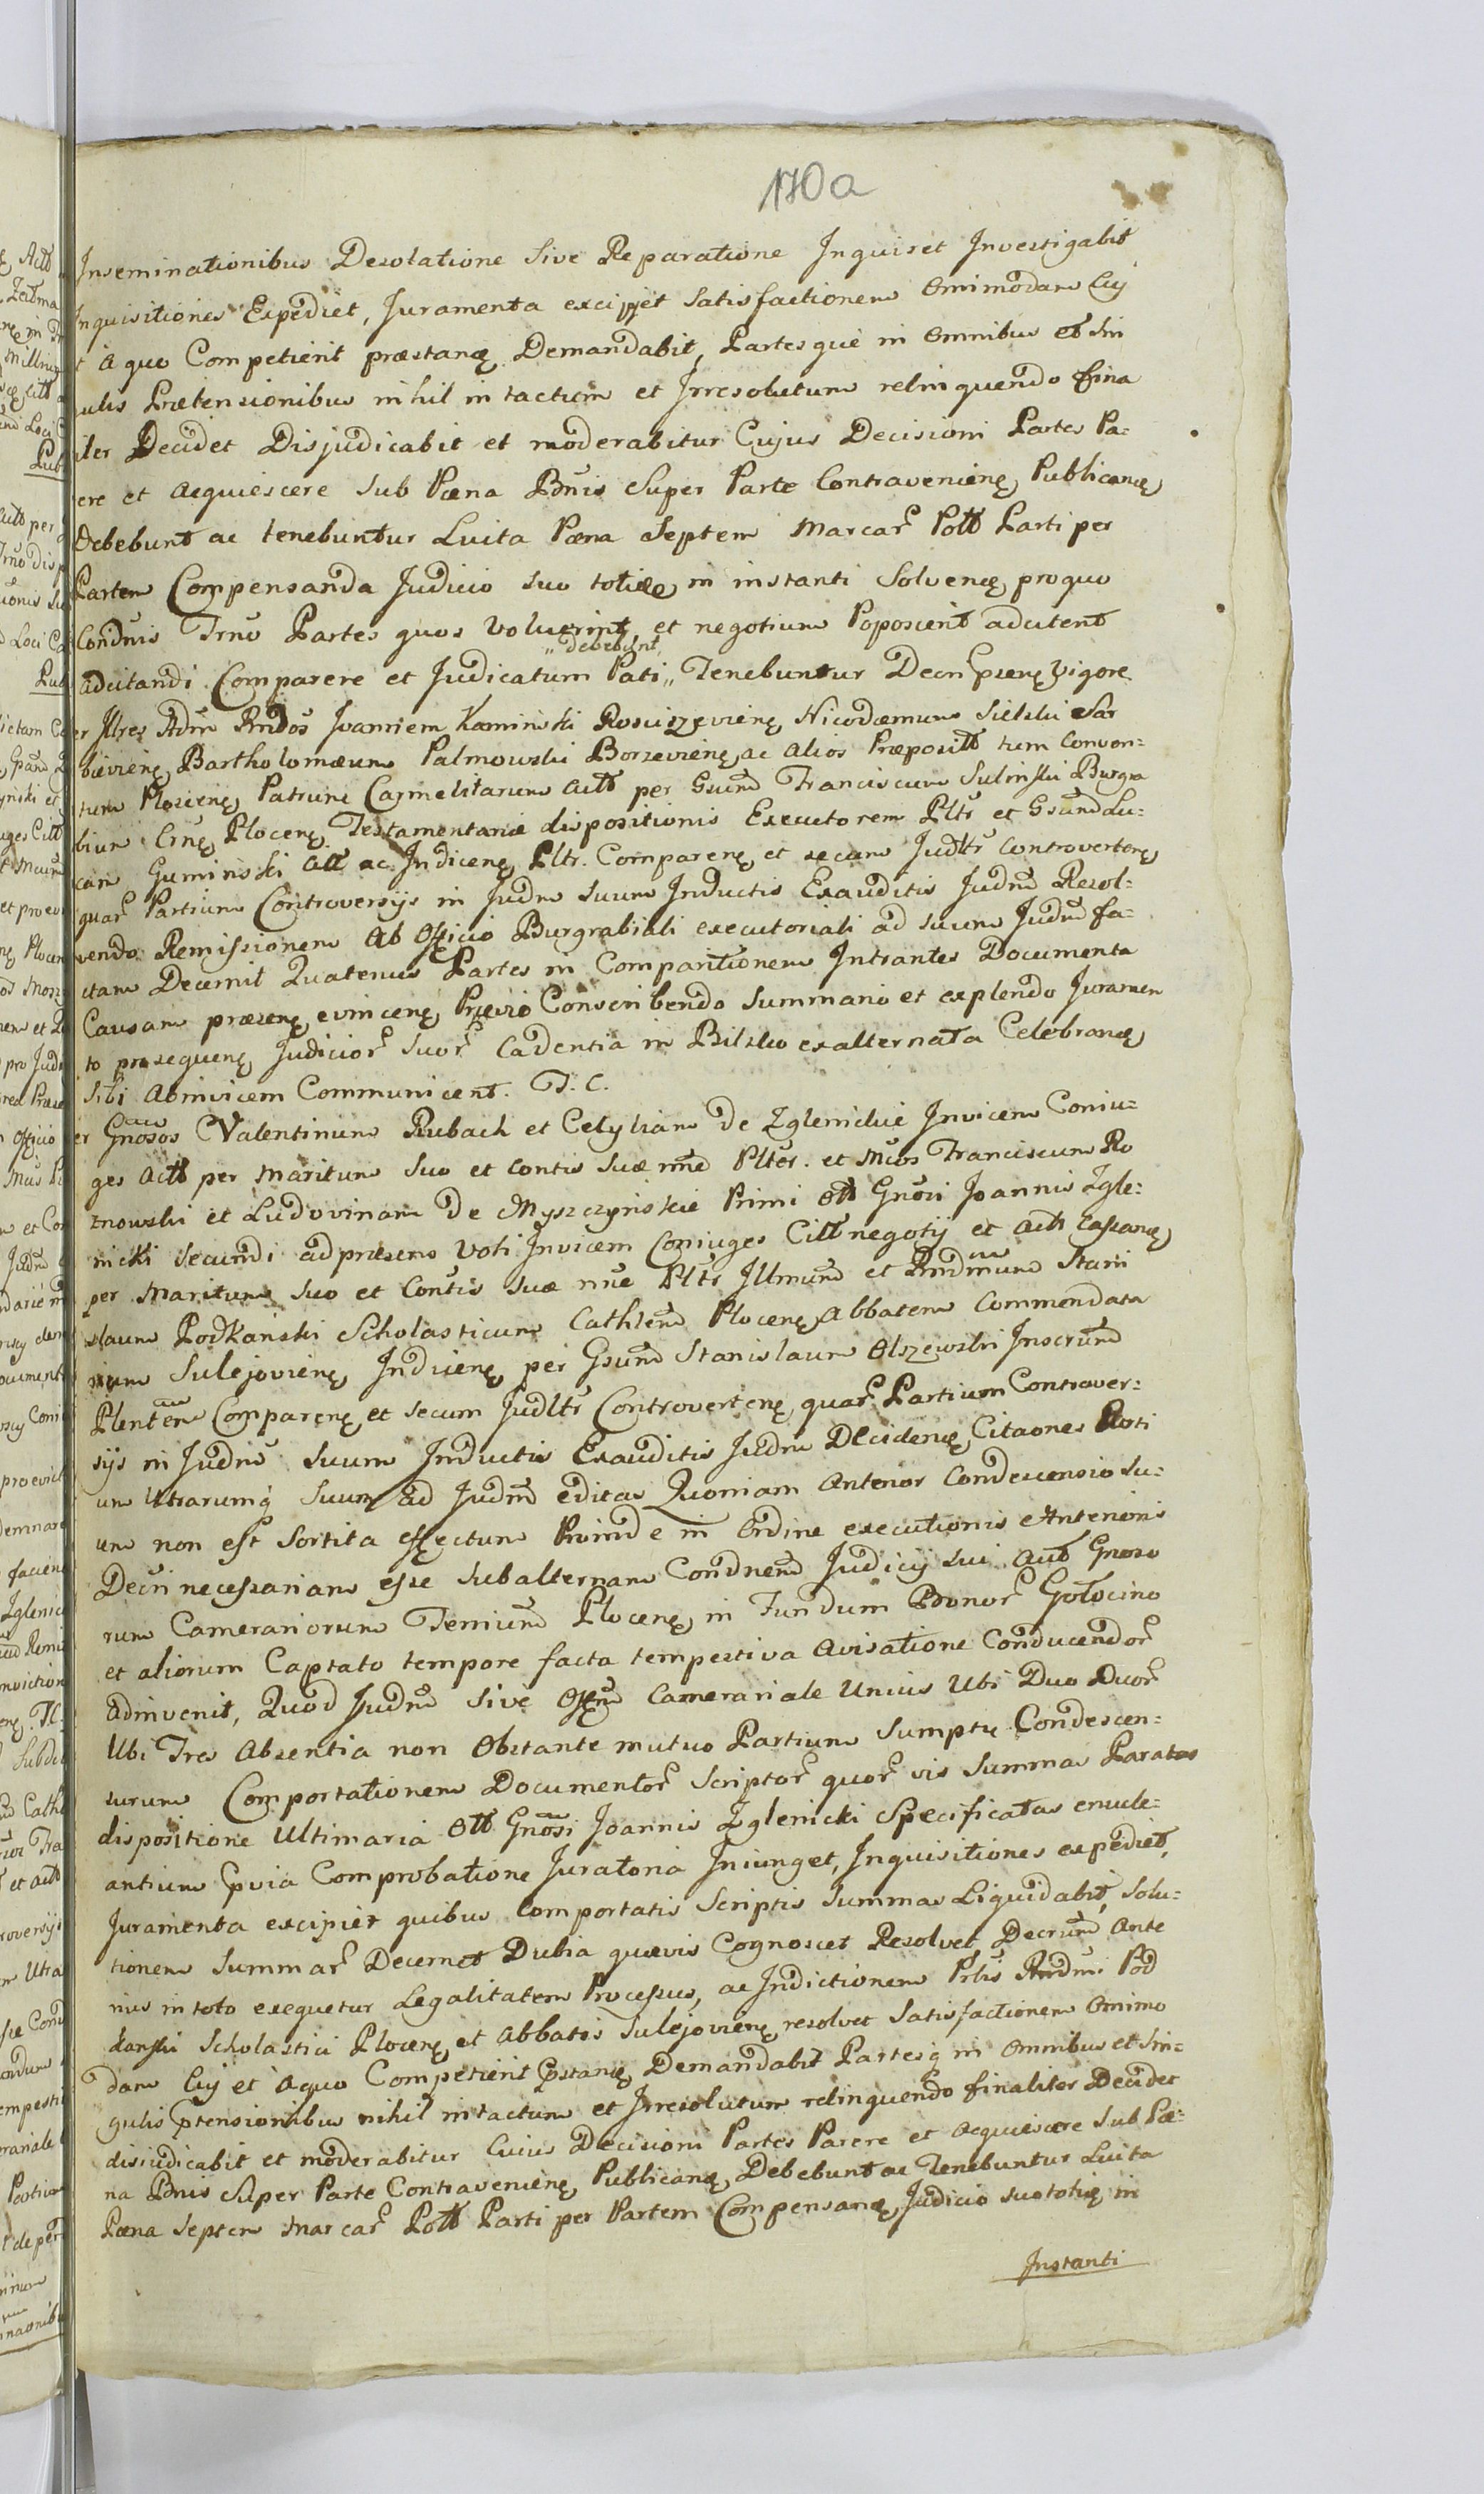 170a
Inseminationibus Desolatione Sive Reparatione Inquiret Investigabit
Inquisitiones Expediet, Juramenta excipiet Satisfactionem Omnimodam Cuj
t a quo Competierit præstanę Demandabit, Partesque in Omnibus et Sin
ulis Prætensionibus nihil intactum et Irresolutum relinquendo fina
iter Decidet Disjudicabit et moderabitur Cujus Decisioni Partes Pa=
rere et acquiescere Sub Pœna Bnis Super Parte Contravenienę Publicanę
Debebunt ac tenebuntur Luita Pœna Septem Marcar Pott Parti per
Partem Compensanda Judicio suo totięę in instanti Solvenę pro quo
Condnis Trno Partes quos Voluerint, et negotium Poposcerit adcitent
adcitandi Comparere et Judicatum Pati „ debebunt, Tenebuntur Decri Psenę vigore
er Illres Adm Rndos Joannem Kaminski Rosciszevienę Nicodæmum Sielski Sar
bievienę Bartholomæum Palmowski Borzevienę ac alios Præposit tum Conven=
tum Plocenę Patrum Carmelitarum Actt per Gsum Franciscum Sulinski Burgra
bium Crnę Plocenę Testamentariæ dispositionis Executorem Pltr et Gsum Lu=
cam Guminski att ac Indicenę Pltr. Comparenę et secum Judltr Controvertenę
quar Partium Controversijs in Judm Suum Inductis Exauditis Judm Resol=
vendo Remissionem ab Officio Burgrabiali executoriali ad suum Judm fa=
ctam Decernit Quatenus Partes in Comparitionem Intrantes Documenta
Causam præsenę evincenę Prævio Conscribendo Summario et explendo Juramen
to prosequenę Judicior Suor Cadentia in Bilsko exalternata Celebranę
Sibi abinvicem Communicent. T. C.
er Gnosos Valentinum Rubach et Celyliam de Zglenickie Invicem Coniu=
ges Actt per Maritum Suo et Contis Suæ nne Pltr. et Mcos Franciscum Ro
znowski et Ludovinam de Myszczynskie Primi ott Gnosi Joannis Zgle=
nicki Secundi ad præsens Voti Invicem Coniuges Citt negotij et actt Cassanę
per Maritum Suo et Contis Suæ nne Pltr Illmum et Rndmum Stani
slaum Podkanski Scholasticum Cathlem Plocenę Abbatem Commendata
rium Sulejovienę Indicenę per Gsum Stanislaum Olszewski Inscrum
Plentem Comparenę et secum Judltr Controvertenę quar Partium Controver=
sijs in Judm Suum Inductis Exauditis Judm Decidenę Citaones Parti
um Utrarumq Suum ad Judm editas Quoniam Anterior Condescensio Su=
um non est Sortita effectum Proinde in Ordine executionis Anterioris
Decri necessariam esse Subalternam Condnem Judicij Sui aut Gnoso
rum Camerariorum Temium Plocenę in Fundum Bonor Gotocino
et aliorum Captato tempore facta tempestiva avisatione Conducendor
adinvenit, Quod Judm Sive Offm Camerariale Unius Ubi Duo Duor
Ubi Tres Absentia non Obstante mutuo Partium Sumptu Condescen=
surum Comportationem Documentor Scriptor quor vis Summas Paratas
dispositione Ultimaria Ott Gnosi Joannis Zglenicki Specificatas enucle=
antium Pvia Comprobatione Juratoria Iniunget, Inquisitiones expediet,
Juramenta excipiet quibus Comportatis Scriptis Summas Liquidabit, Solu=
tionem Summar Decernet Dubia quævis Cognoscet Resolvet Decrum Ante
rius in toto exequetur Legalitatem Processus, ac Indictionem Prlis Rndmi Pod
kanski Scholastici Plocenę et Abbatis Sulejovienę resolvet Satisfactionem Omnimo
dam Cuj et a quo Competierit Pstanę Demandabit Partesq in Omnibus et Sin=
gulis Ptensionibus nihil intactum et Irresolutum relinquendo finaliter Decidet
disiudicabit et moderabitur Cuius Decisioni Partes Parere et Acquiescere Sub Pœ=
na Bnis Super Parte Contravenienę Publicanę Debebunt ac Tenebuntur Luita
Pœna Septem Marcar Pott Parti per Partem Compensanę Judicio suo totię in
Instanti